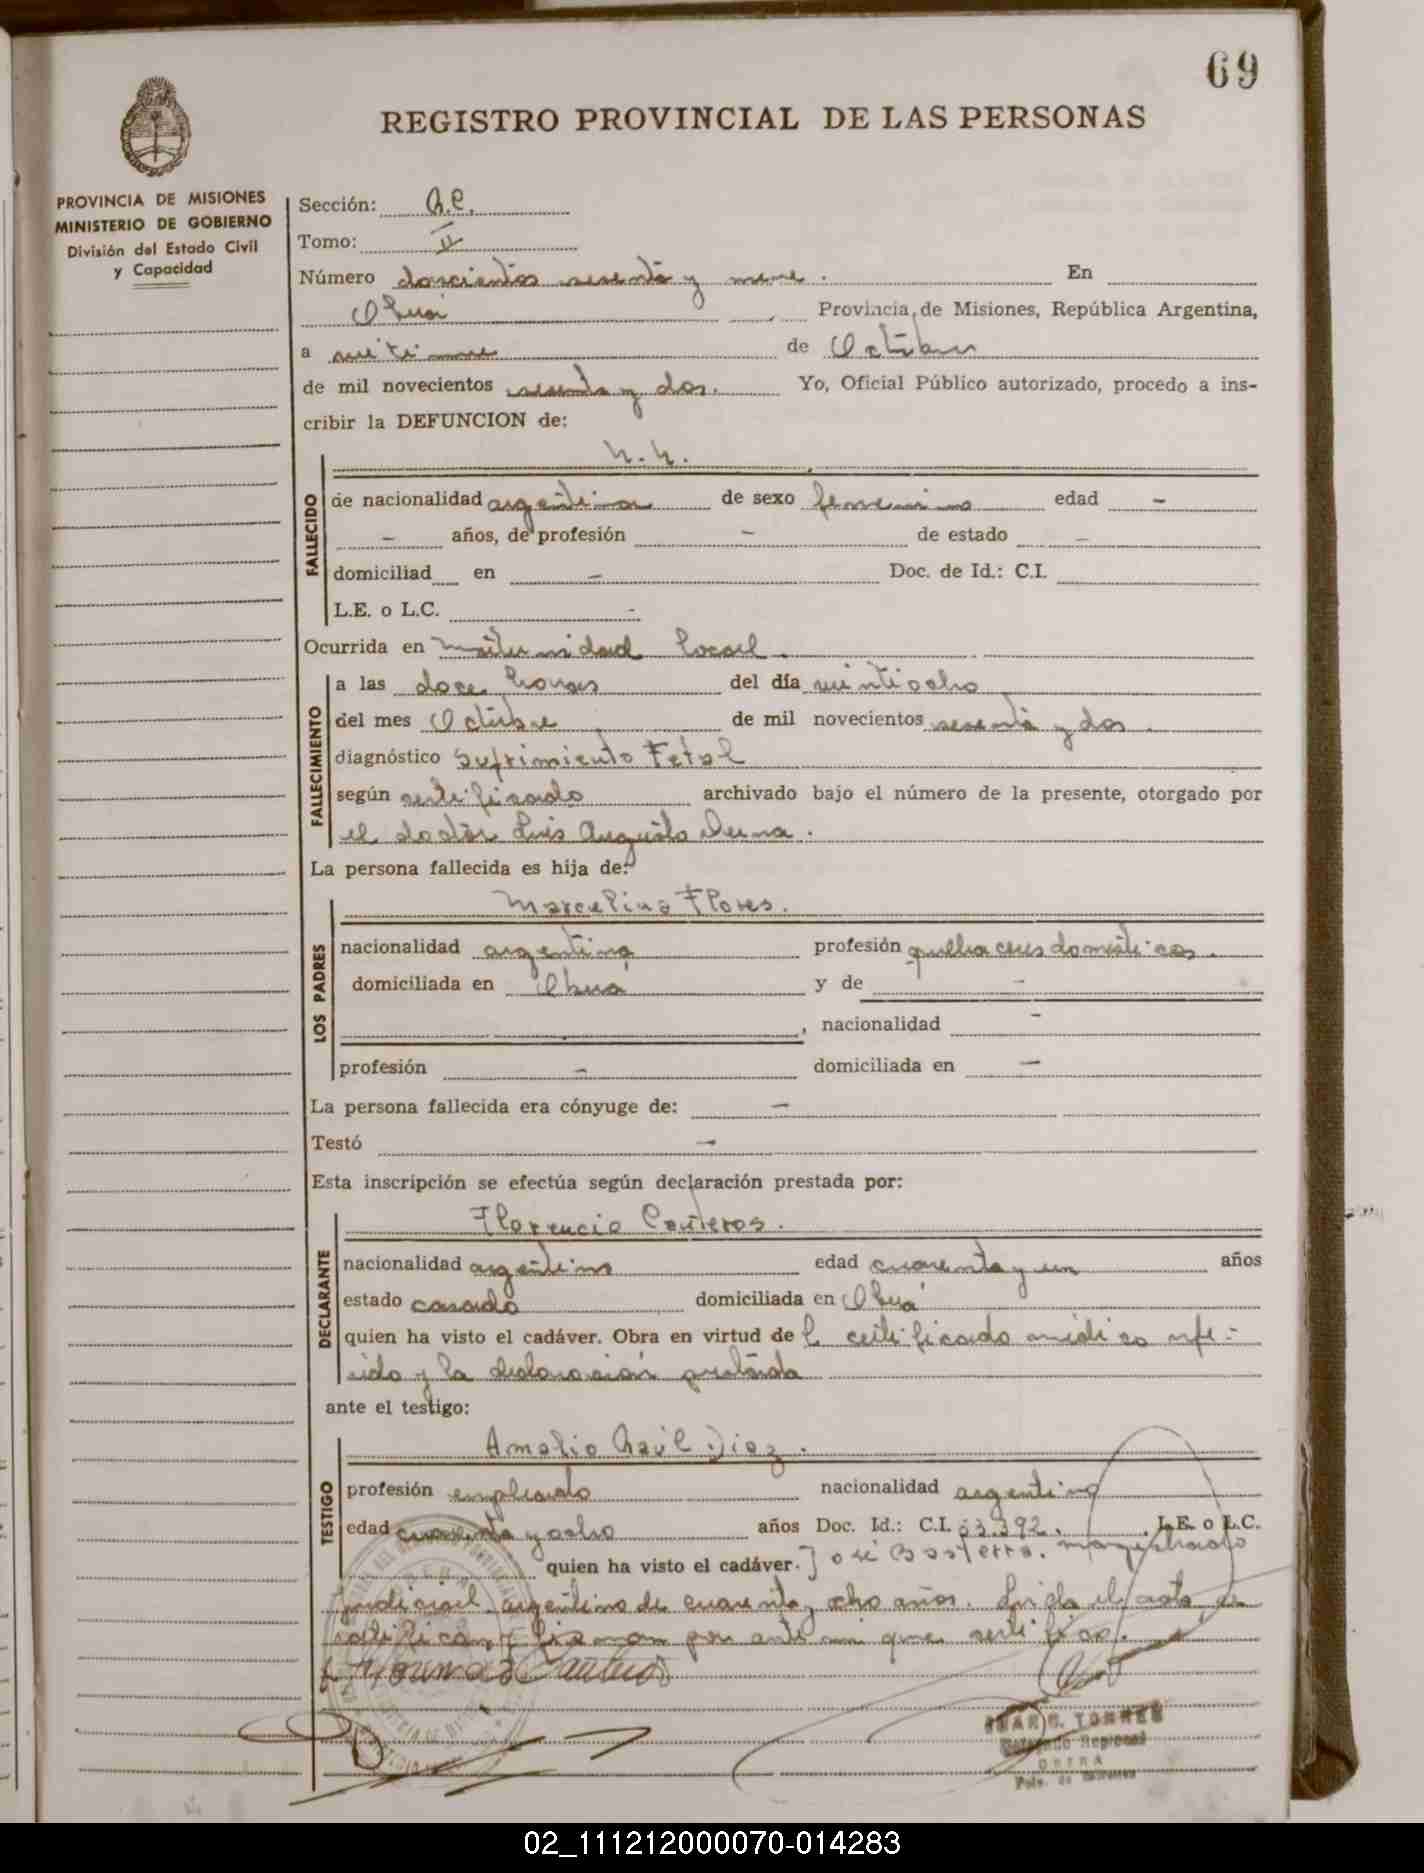 69
REGISTRO PROVINCIAL DE LAS PERSONAS
PROVINCIA DE MISIONES
MINISTERIO DE GOBIERNO
División del Estado Civil
y Capacidad
Sección:
Tomo: II
Número doscientos sesenta y nueve. En
Oberá Provincia de Misiones, República Argentina,
a veintinueve de Octubre
de mil novecientos sesenta y dos. Yo, Oficial Público autorizado, procedo a ins-
cribir la DEFUNCION de:
N. N.
FALLECIDO
de nacionalidad argentina de sexo femenino edad -
- años, de profesión - de estado -
domiciliad en - Doc. de Id.: C.I.
L.E. o L.C. -
Ocurrida en Maternidad local.
FALLECIMIENTO
a las doce horas del día veintiocho
del mes Octubre de mil novecientos sesenta y dos.
diagnóstico Sufrimiento Fetal
según certificado archivado bajo el número de la presente, otorgado por
el doctor Luis Augusto
La persona fallecida es hija de:
Marcelina Flores.
LOS PADRES
nacionalidad argentina profesión quehaceres domésticos.
domiciliada en Oberá y de -
, nacionalidad -
profesión - domiciliada en -
La persona fallecida era cónyuge de: -
Testó -
Esta inscripción se efectúa según declaración prestada por:
Florencio
DECLARANTE
nacionalidad argentino edad cuarenta y un años
estado casado domiciliada en Oberá
quien ha visto el cadáver. Obra en virtud del certificado médico refe-
rido y la declaración prestada
ante el testigo:
Amelio Raúl Diaz.
TESTIGO
profesión empleado nacionalidad argentino
edad cuarenta y ocho años Doc. Id.: C.I. 53.392. L.E. o L.C.
quien ha visto el cadáver. José
judicial, argentino de cuarenta y ocho años. Leída el acta, la
ratifican y firman por ante mi que certifico.
JUAN C. TORRES
Delegado Regional
OBERA
Pcia. de Misiones
02_111212000070-014283